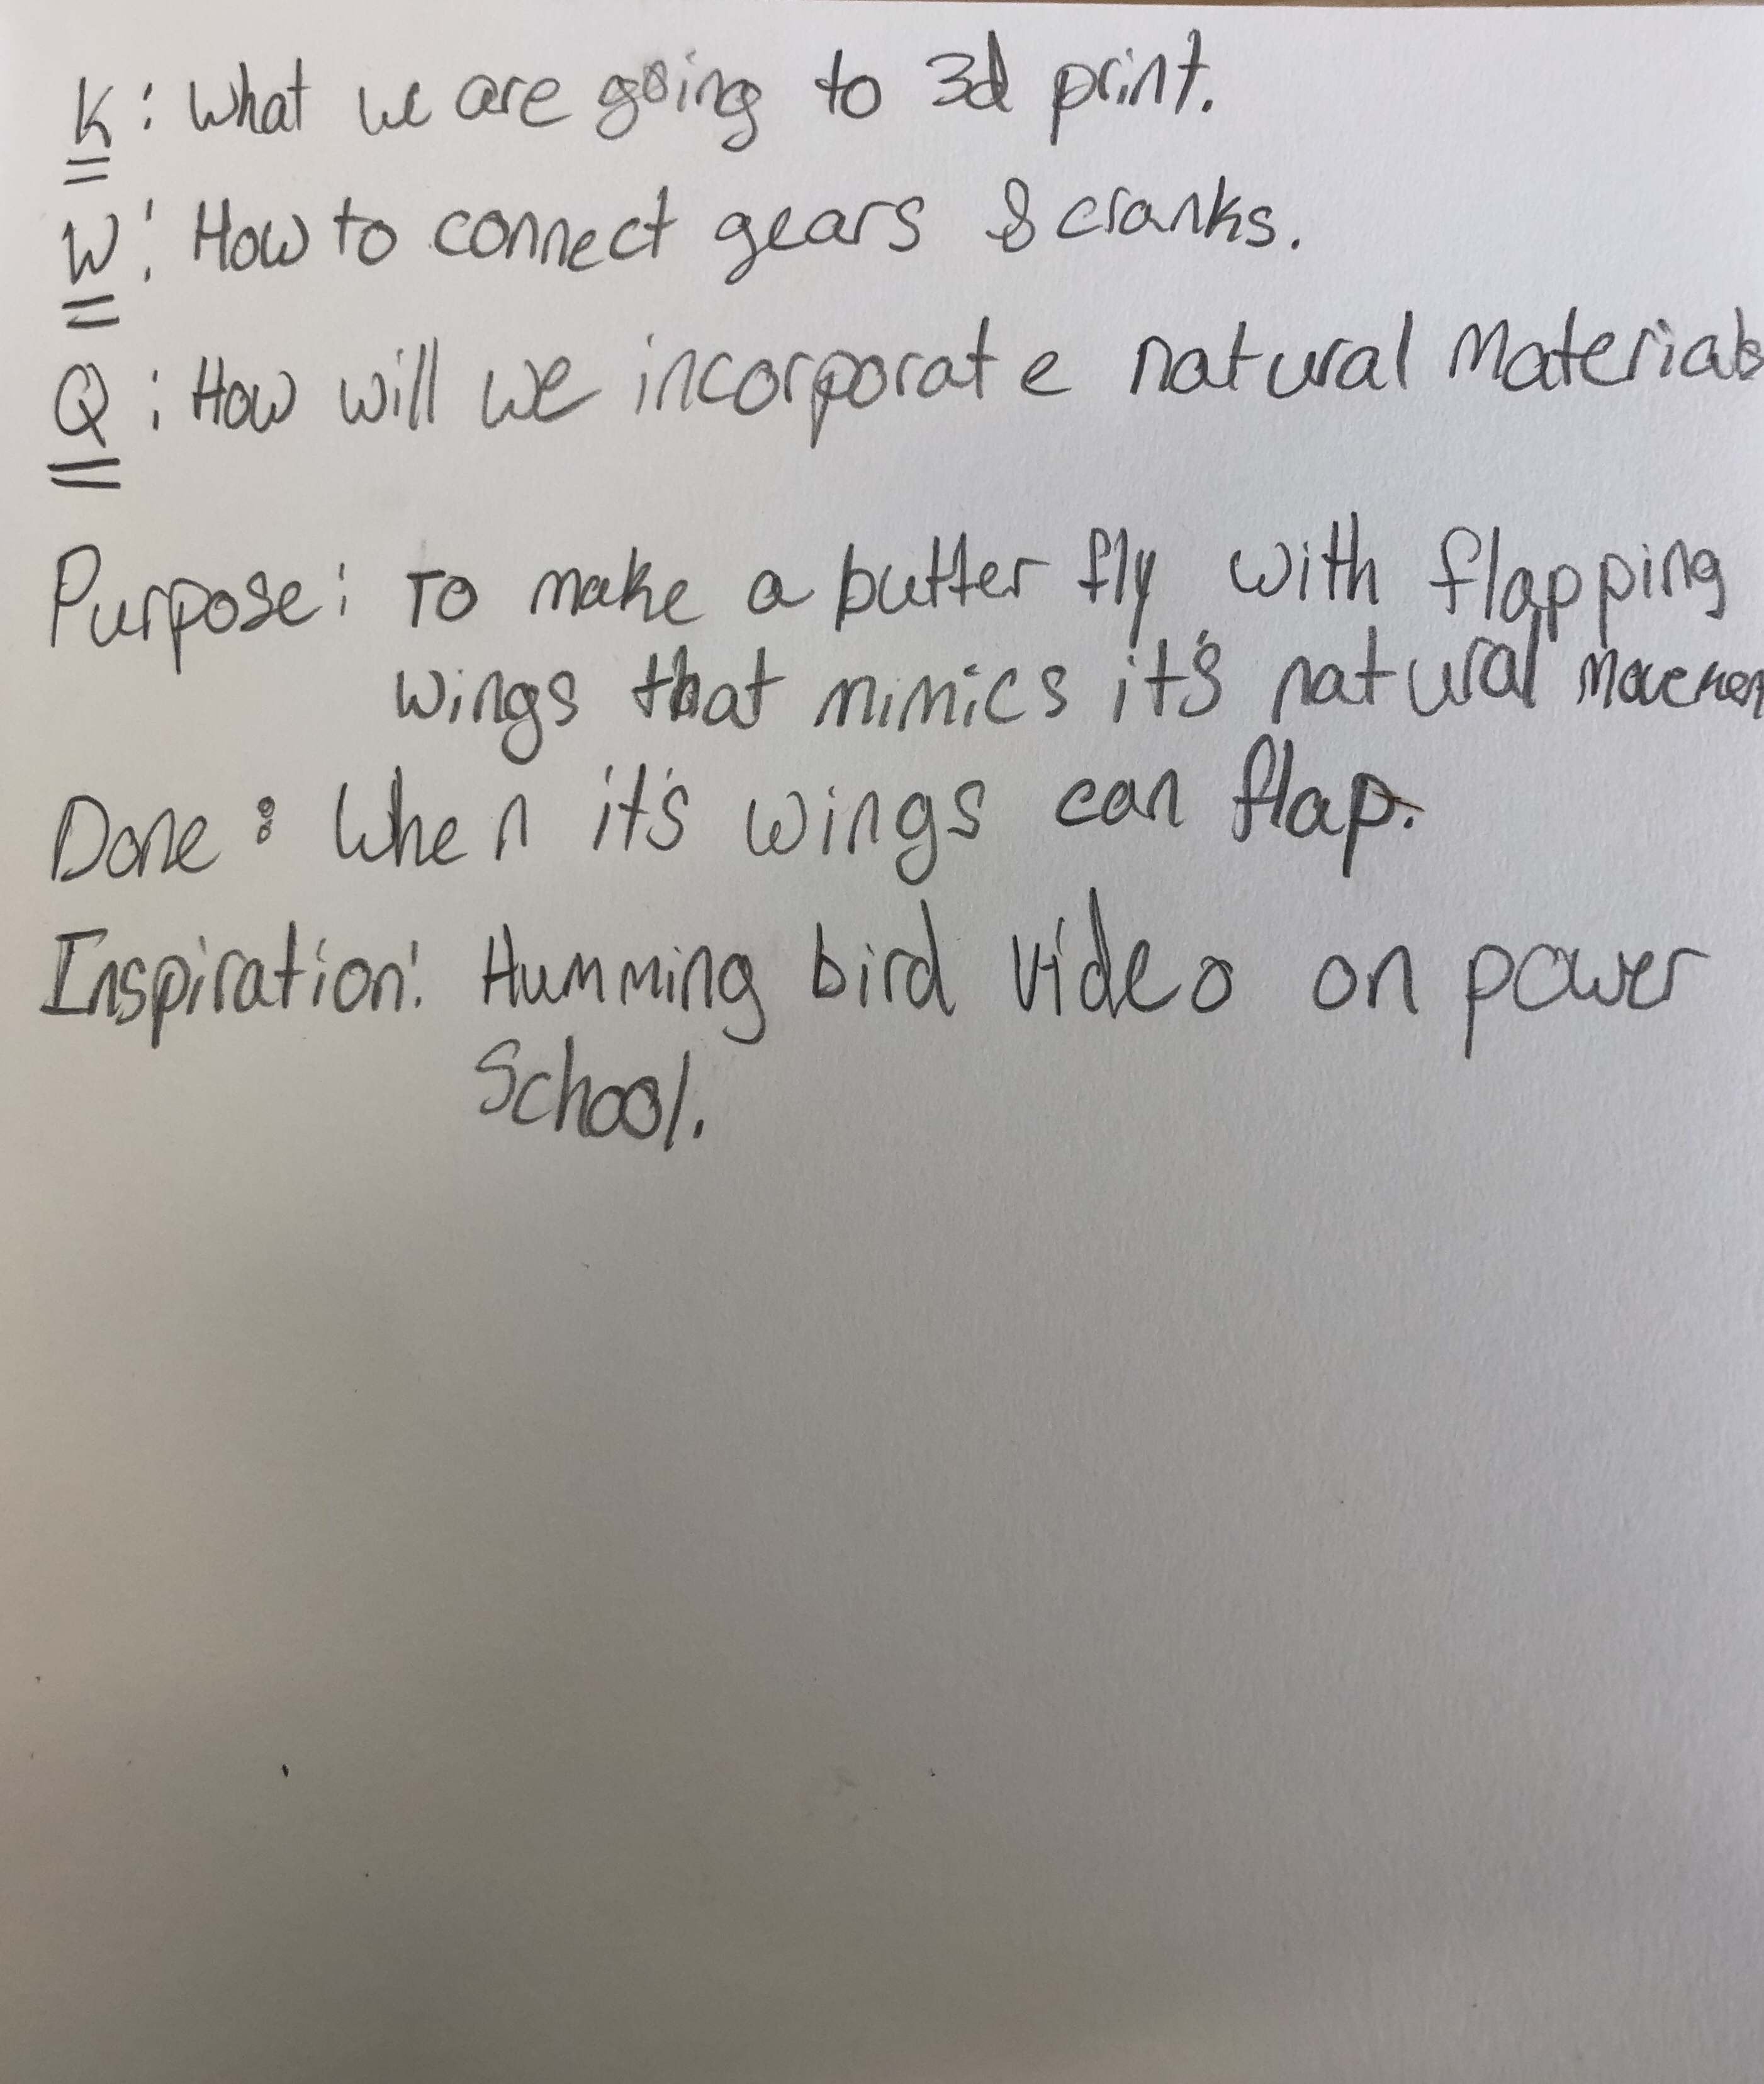 K: What we are going to 3d print.
W: How to connect gears & cranks.
Q: How will we incorporate natural Materials
Purpose: To make a butter fly with flapping
wings that mimics it's natural Movemen
Done: When it's wings can flap.
Inspiration: Humming bird video on power
School.